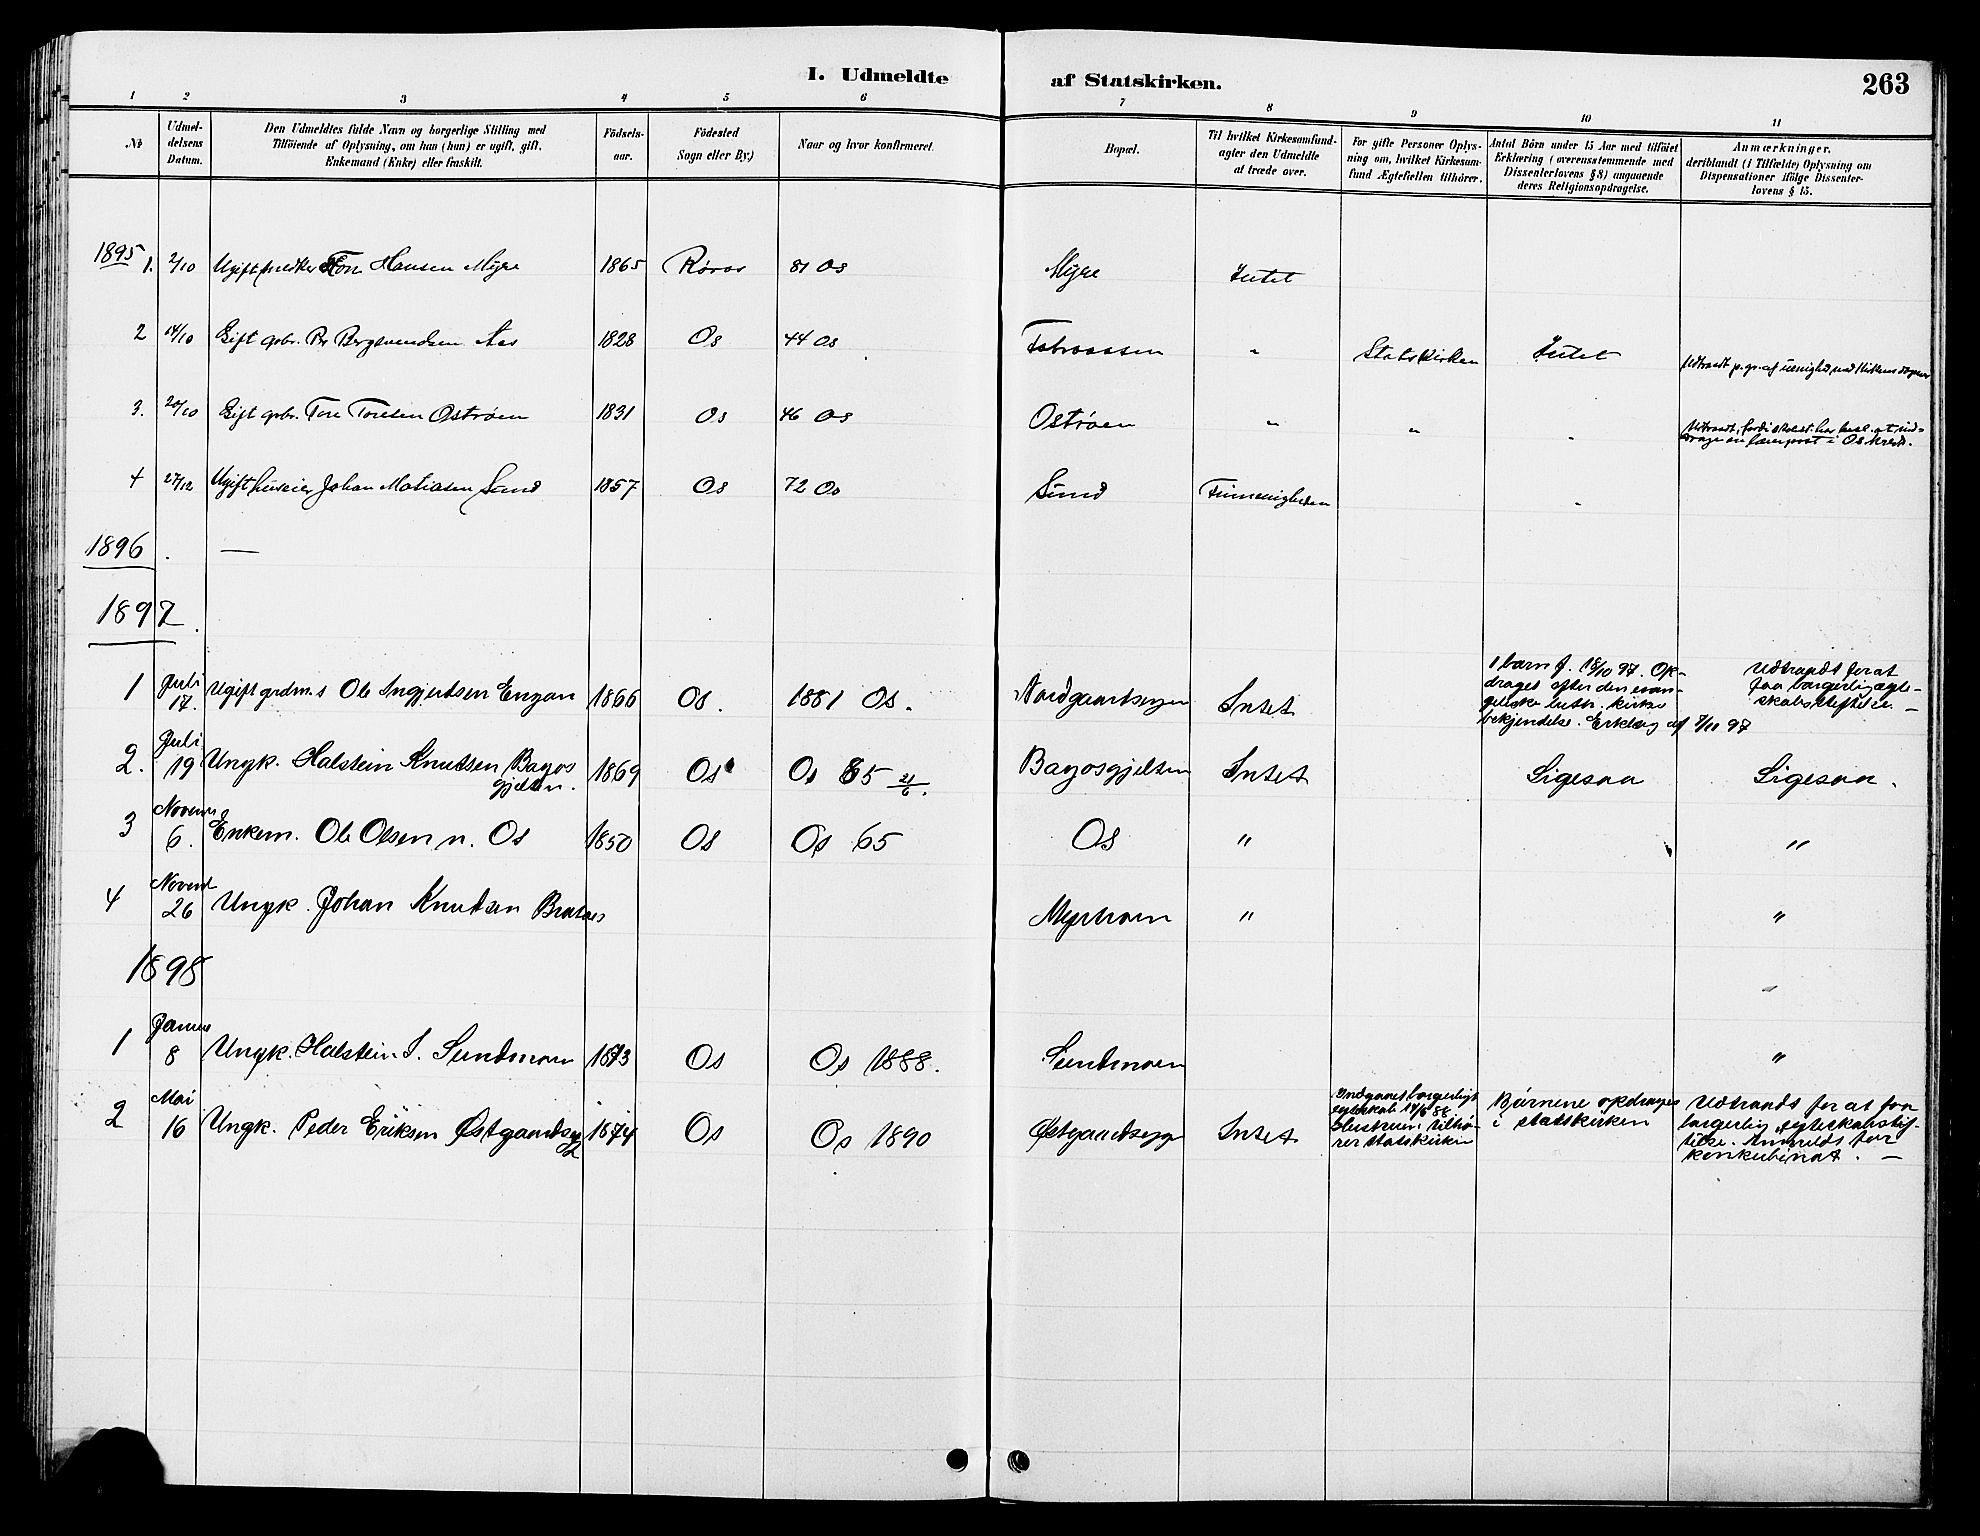 I. Udmeldte af Statskirken. 263
1 2 3 4 5 6 7 8 9 10 11
№ Udmeldelsens Datum. Den Udmeldtes fulde Navn og borgerlige Stilling med Tilföiende af Oplysning, om han (hun) er ugift, gift, Enkemand (Enke) eller fraskilt. Födselsaar. Födested Sogn eller By.) Naar og hvor konfirmeret. Bopæl. Til hvilket Kirkesamfund agter den Udmeldte at træde over. For gifte Personer Oplysning om, hvilket Kirkesamfund Ægtefællen tilhörer. Antal Börn under 15 Aar med tilföiet Erklæring (overensstemmende med Dissenterlovens § 8) angaaende deres Religionsopdragelse. Anmærkninger. deriblandt (i Tilfælde) Oplysning om Dispensationer ifölge Dissenterlovens § 15.
1895
1. 2/10 Ugift Tore Hansen Myre 1865 Røros 81 Os Myre Intet
2 14/10 Gift gbr. Per Bergsvendsen Aas 1828 Os 44 Os " Statskirken Intet Udtraadt p. gr. af uenighed med Kirkens
3. 20/10 Gift gbr. Tore Toresen Ostrøen 1831 Os 46 Os Ostrøen " " "
4 27/12 Ugift Johan Matiasen Sund 1857 Os 72 Os Sund "
1896 . —
1897.
1 Juli 17. Ugift grdm.s Ole Ingjertsen Engan 1866 Os. 1881 Os. Intet 1 barn f. 18/10 97. Opdraget efter den evangeliske luth. kirkes bekjendelse. Erklæring af 7/10 97 Udtraadt for at faa borgerlig ægteskabsstiftelse. —
2. Juli 19 Ungk. Halstein Knutsen Bagosgjelten. 1869 Os Os 85 21/6. Bagosgjelten Intet Ligesaa Ligesaa.
3 Novemr 6. Enkem. Ole Olsen n. Os 1850 Os Os 65 Os " "
4 Novemb 26 Ungk. Johan Knutsen " "
1898 "
1 Januar 8 Ungk. Halstein I. Sundmoen 1873 Os Os 1888. Sundmoen "
2 Mai 16 Ungk. Peder Eriksen Østgaardseggen 1874 Os Os 1890 Østgaardsegg Intet Indgaaet borgerligt egteskab Hustruen tilhører statskirken Børnene opdrages i statskirken Udtraadt for at faa borgerlig egteskabsstiftelse. Anmeldt for konkubinat. —